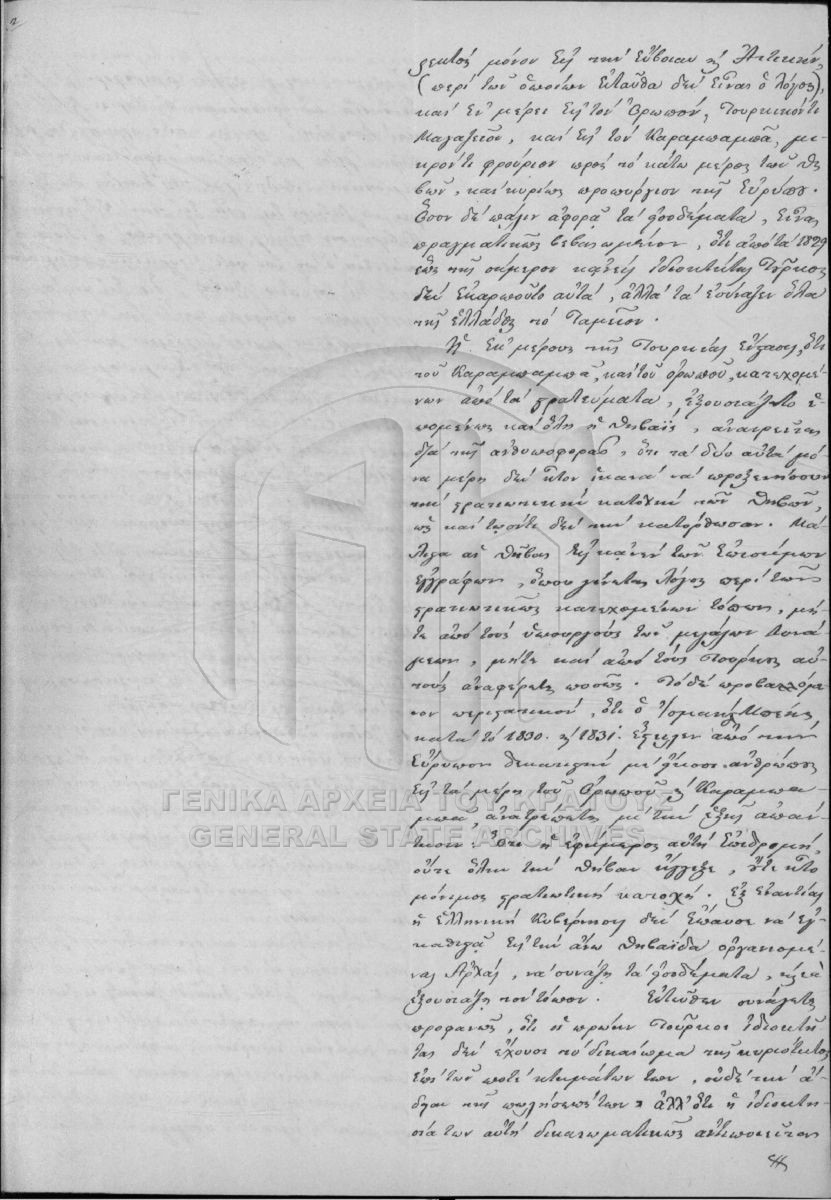 ρεκτοὶ μόνον εἰς τὴν Εὔβοιαν ϗ Ἀττικήν,
(περὶ τῶν ὁποίων ἐνταῦθα δὲν εἶναι ὁ λόγος),
καὶ ἐν μέρει εἰς τὸν Ὀρωπόν, Τουρκικόν τι
Μαγαζεῖον, καὶ εἰς τὸν Καραμπαμπᾶ, μι-
κρόν τι φρούριον πρὸς τὸ κάτω μέρος τῶν Θη-
βῶν, καὶ κυρίως προπύργιον τῆς Εὐρίπου.
Ὅσον δὲ πάλιν ἀφορᾷ τὰ εἰσοδήματα, εἶναι
πραγματικῶς βεβαιωμένον, ὅτι ἀπὸ τὰ 1829
ἕως τῆς σήμερον κᾀνεὶς ἰδιοκτήτης Τοῦρκος
δὲν ἐκαρποῦτο αὐτά, ἀλλὰ τὰ ἐσύναξεν ὅλα
τῆς Ἑλλάδος τὸ Ταμεῖον.
Ἡ ἐκ μέρους τῆς Τουρκίας ἔνστασις, ὅτι
τοῦ Καραμπαμπᾶ, καὶ τοῦ Ὀρωποῦ, κατεχομέ-
νων ἀπὸ τὰ στρατεύματα, ἐξουσιάζετο ἑ-
πομένως καὶ ὅλη ἡ Θηβαΐς, ἀναιρεῖται
διὰ τῆς ἀνθυποφορᾶς, ὅτι τὰ δύο αὐτὰ μό-
να μέρη δὲν ἦτον ἱκανὰ νὰ προξενήσουν
τὴν στρατιωτικὴν κατοχὴν τῶν Θηβῶν,
ὡς καὶ ποτὲ δὲν τὴν κατόρθωσαν. Μά-
λιστα αἱ Θῆβαι εἰς κᾀνὲν τῶν ἐπισήμων
ἐγγράφων, ὅπου γίνεται λόγος περὶ τῶν
στρατιωτικῶς κατεχομένων τόπων, μή-
τε ἀπὸ τοὺς ὑπουργοὺς τῶν μεγάλων Δυνά-
μεων, μήτε καὶ ἀπὸ τοὺς Τούρκους αὐ-
τοὺς ἀναφέρεται ποσῶς. Τὸ δὲ προβαλλόμε-
νον περιστατικόν, ὅτι ὁ Ὀσμάν Μπέης
κατὰ τὸ 1830. ϗ 1831. ἔστειλεν ἀπὸ τὴν
Εὔριπον δεκατιστὴν μὲ εἴκοσι ἀνθρώπους
εἰς τὰ μέρη τοῦ Ὀρωποῦ ϗ Καραμπα-
μπᾶ ἀνατρέπεται μὲ τὴν ἑξῆς ἀπάν-
τησιν: Ὅτι ἡ ἐφήμερος αὐτὴ ἐπιδρομή,
οὔτε ὅλην τὴν Θήβαν ἤγγιξε, οὔτε ἦτο
μόνιμος στρατιωτικὴ κατοχή. Ἐξ ἐναντίας
ἡ Ἑλληνικὴ Κυβέρνησις δὲν ἔπαυσε νὰ ἐγ-
καθιστᾷ εἰς τὴν ἄνω Θηβαΐδα ὀργανισμέ-
νας Ἀρχάς, νὰ συνάζῃ τὰ εἰσοδήματα, ϗ νὰ
ἐξουσιάζῃ τὸν τόπον. Ἐντεῦθεν συνάγεται
προφανῶς, ὅτι οἱ πρώην Τοῦρκοι ἰδιοκτῆ-
ται δὲν ἔχουσι τὸ δικαίωμα τῆς κυριότητος
ἐπὶ τῶν ποτὲ κτημάτων των, οὐδὲ τὴν ἄ-
δειαν τῆς πωλήσεώς των, ἀλλ' ὅτι ἡ ἰδιοκτη-
σία των αὐτὴ δικαιωματικῶς ἀντιποιεῖται
ΓΕΝΙΚΑ ΑΡΧΕΙΑ ΤΟΥ ΚΡΑΤΟΥΣ
GENERAL STATE ARCHIVES